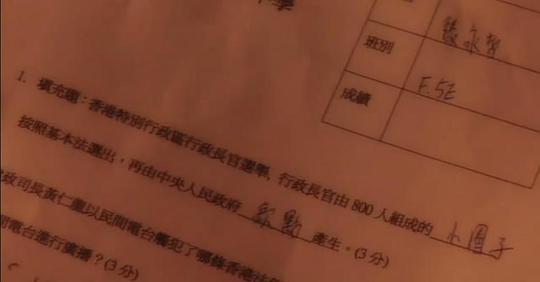 學
班別 F.5E
成績
1. 填充題:香港特別行政區行政長官選舉,行政長官由 800 人組成的 小圈子
按照基本法選出,再由中央人民政府 欽點 產生。(3分)
政司長黃仁龍以民間電台觸犯了哪條香港法
間電台進行廣播?(3分)